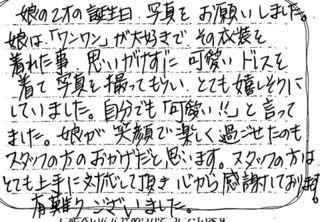 娘の2才の誕生日 写真を お願いしました。
娘は「ワンワン」が大好きで その衣装を
着れた事 思いがけずに 可愛い ドレスを
着て 写真を撮ってもらい、とても嬉しそうに
していました。自分でも「可愛い!!」と言って
ました。娘が 笑顔で楽しく過ごせたのも
スタッフの方のおかげだと思います。スタッフの方は、
とても上手に対応して頂き 心から感謝しております。
有難うございました。